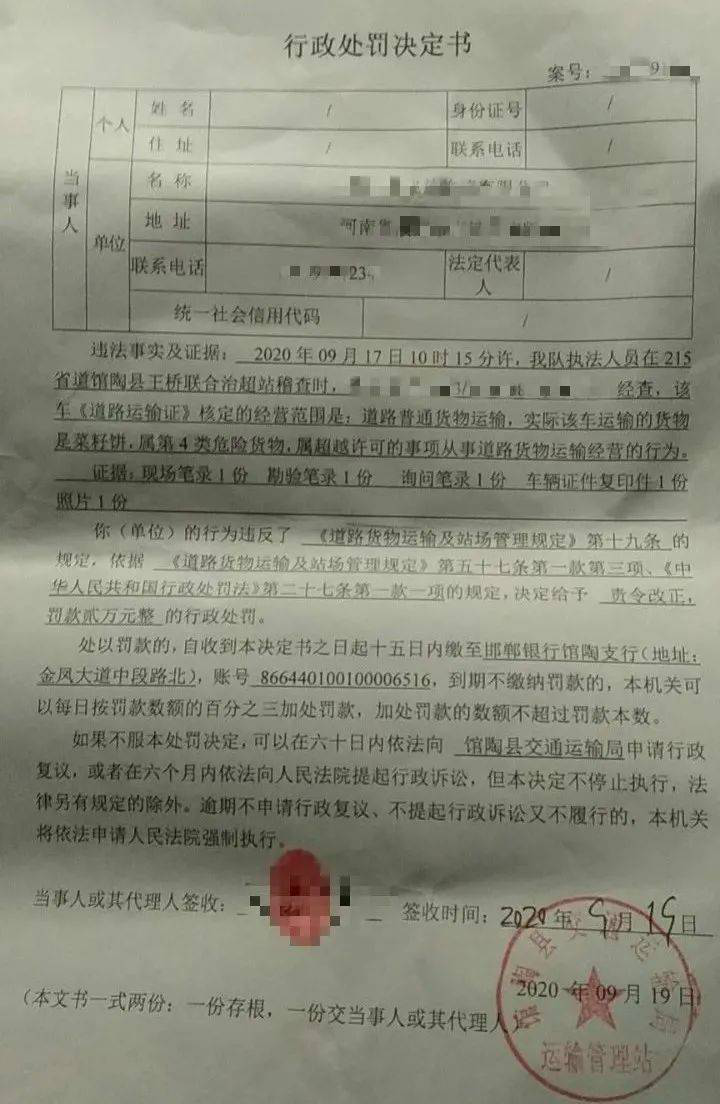 行政处罚决定书
案号: 9
当事人 个人 姓名 / 身份证号 /
住址 / 联系电话 /
单位 名称 有限公司
地址 河南省
联系电话 23 法定代表人 /
统一社会信用代码 /
违法事实及证据: 2020年09月17日10时15分许，我队执法人员在215
省道馆陶县王桥联合治超站稽查时， 经查，该
车《道路运输证》核定的经营范围是：道路普通货物运输，实际该车运输的货物
是菜籽饼，属第4类危险货物，属超越许可的事项从事道路货物运输经营的行为。
证据：现场笔录1份 勘验笔录1份 询问笔录1份 车辆证件复印件1份
照片1份
你（单位）的行为违反了 《道路货物运输及站场管理规定》第十九条 的
规定，依据 《道路货物运输及站场管理规定》第五十七条第一款第三项、《中
华人民共和国行政处罚法》第二十七条第一款一项的规定，决定给予 责令改正，
罚款贰万元整 的行政处罚。
处以罚款的，自收到本决定书之日起十五日内缴至邯郸银行馆陶支行（地址：
金凤大道中段路北），账号 866440100100006516，到期不缴纳罚款的，本机关可
以每日按罚款数额的百分之三加处罚款，加处罚款的数额不超过罚款本数。
如果不服本处罚决定，可以在六十日内依法向 馆陶县交通运输局申请行政
复议，或者在六个月内依法向人民法院提起行政诉讼，但本决定不停止执行，法
律另有规定的除外。逾期不申请行政复议、不提起行政诉讼又不履行的，本机关
将依法申请人民法院强制执行。
当事人或其代理人签收： 签收时间：2020年9月19日
馆陶县交通运输局
2020年09月19日
（本文书一式两份：一份存根，一份交当事人或其代理人）
运输管理站